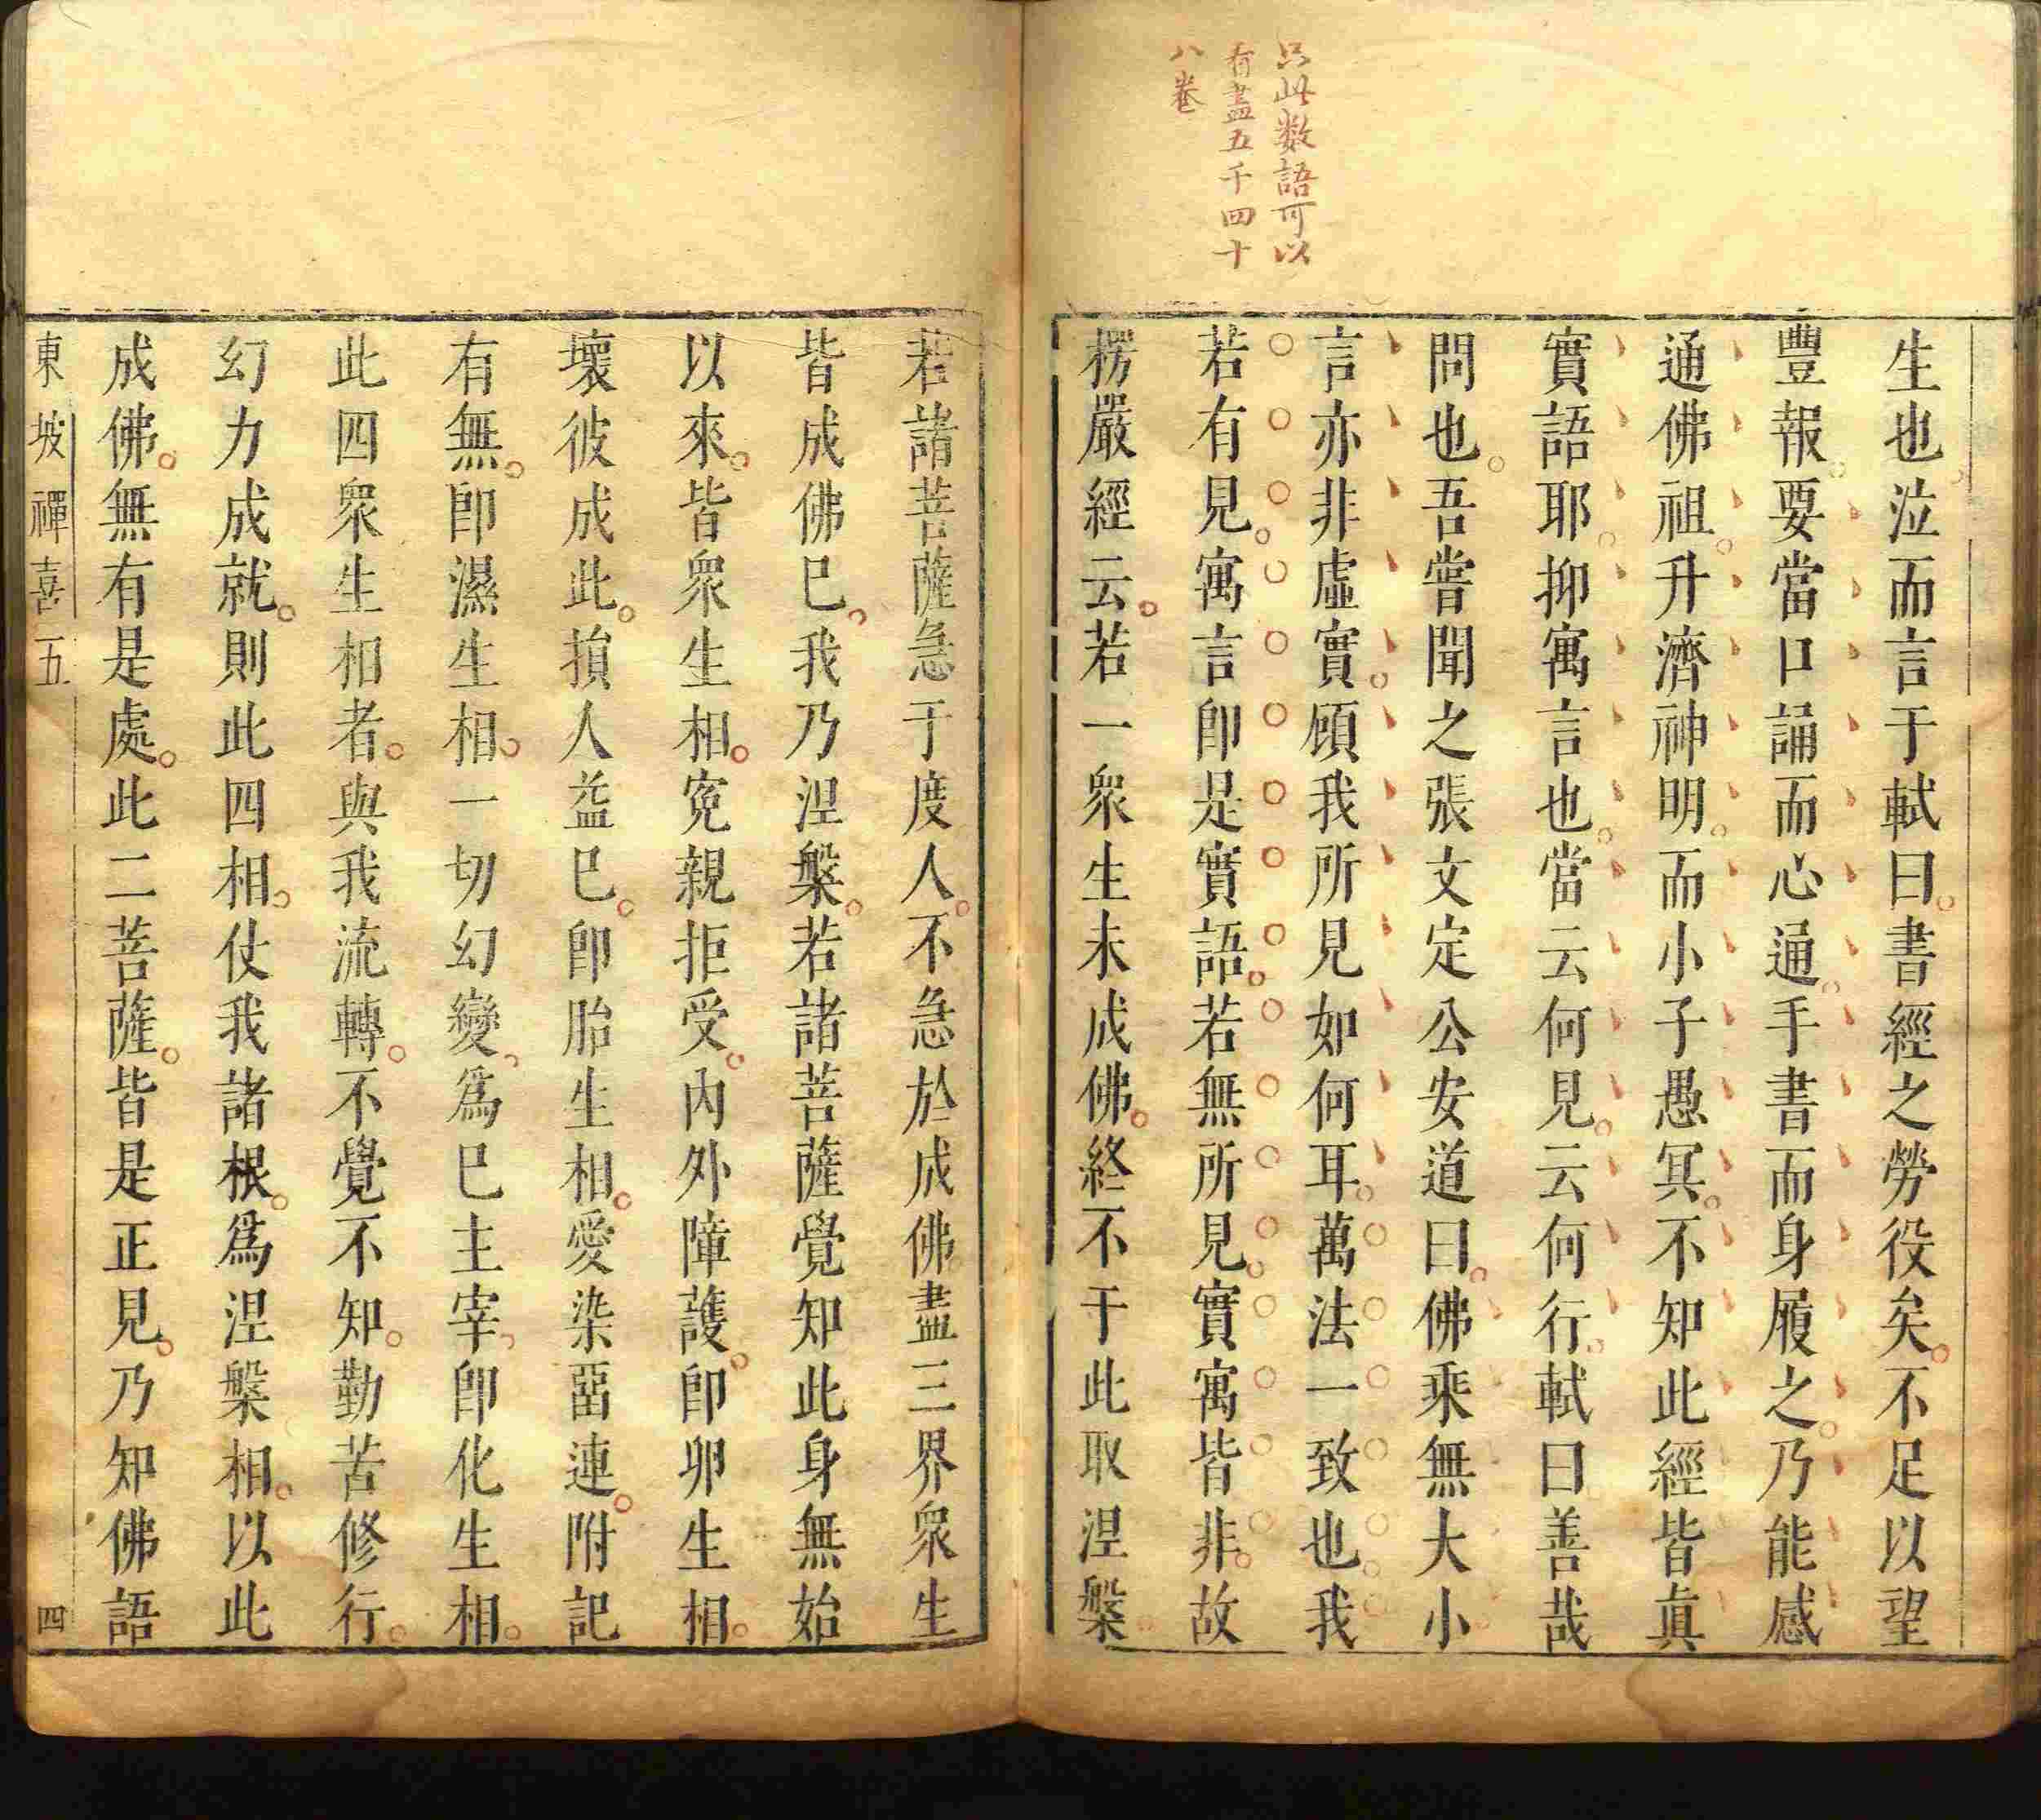 只此數語可以
看盡五千四十
八卷
生也泣而言于軾曰書經之勞役矣不足以望
豐報要當口誦而心通手書而身履之乃能感
通佛祖升濟神明而小子愚冥不知此經皆眞
實語耶抑寓言也當云何見云何行軾曰善哉
問也吾嘗聞之張文定公安道曰佛乘無大小
言亦非虛實顧我所見如何耳萬法一致也我
若有見寓言卽是實語若無所見實寓皆非故
楞嚴經云若一衆生未成佛終不于此取涅槃
若諸菩薩急于度人不急於成佛盡三界衆生
皆成佛巳我乃涅槃若諸菩薩覺知此身無始
以來皆衆生相寃親拒受內外障護卽卵生相
壞彼成此損人益巳卽胎生相愛染畱連附記
有無卽濕生相一切幻變爲巳主宰卽化生相
此四衆生相者與我流轉不覺不知勤苦修行
幻力成就則此四相伏我諸根爲涅槃相以此
成佛無有是處此二菩薩皆是正見乃知佛語
東坡禪喜 五 四